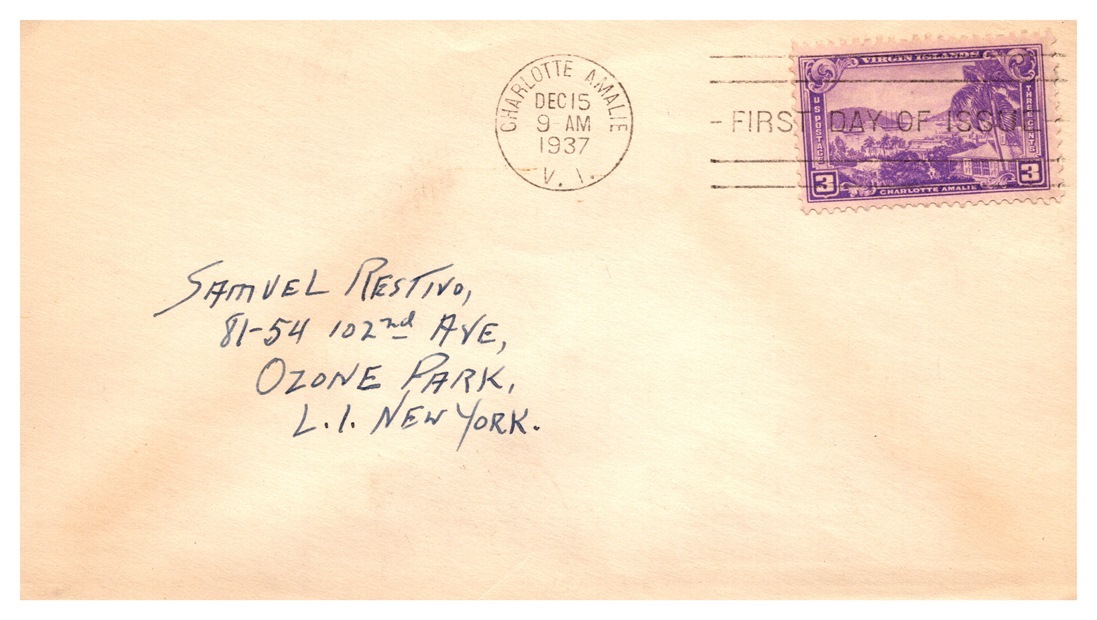 CHARLOTTE AMALIE
DEC 15
9 - AM
1937
V. I.
FIRST DAY OF ISSUE
VIRGIN ISLANDS
US POSTAGE
THREE CENTS
3
3
CHARLOTTE AMALIE
SAMUEL RESTIVO,
81-54 102nd AVE,
OZONE PARK,
L.I. NEW YORK.